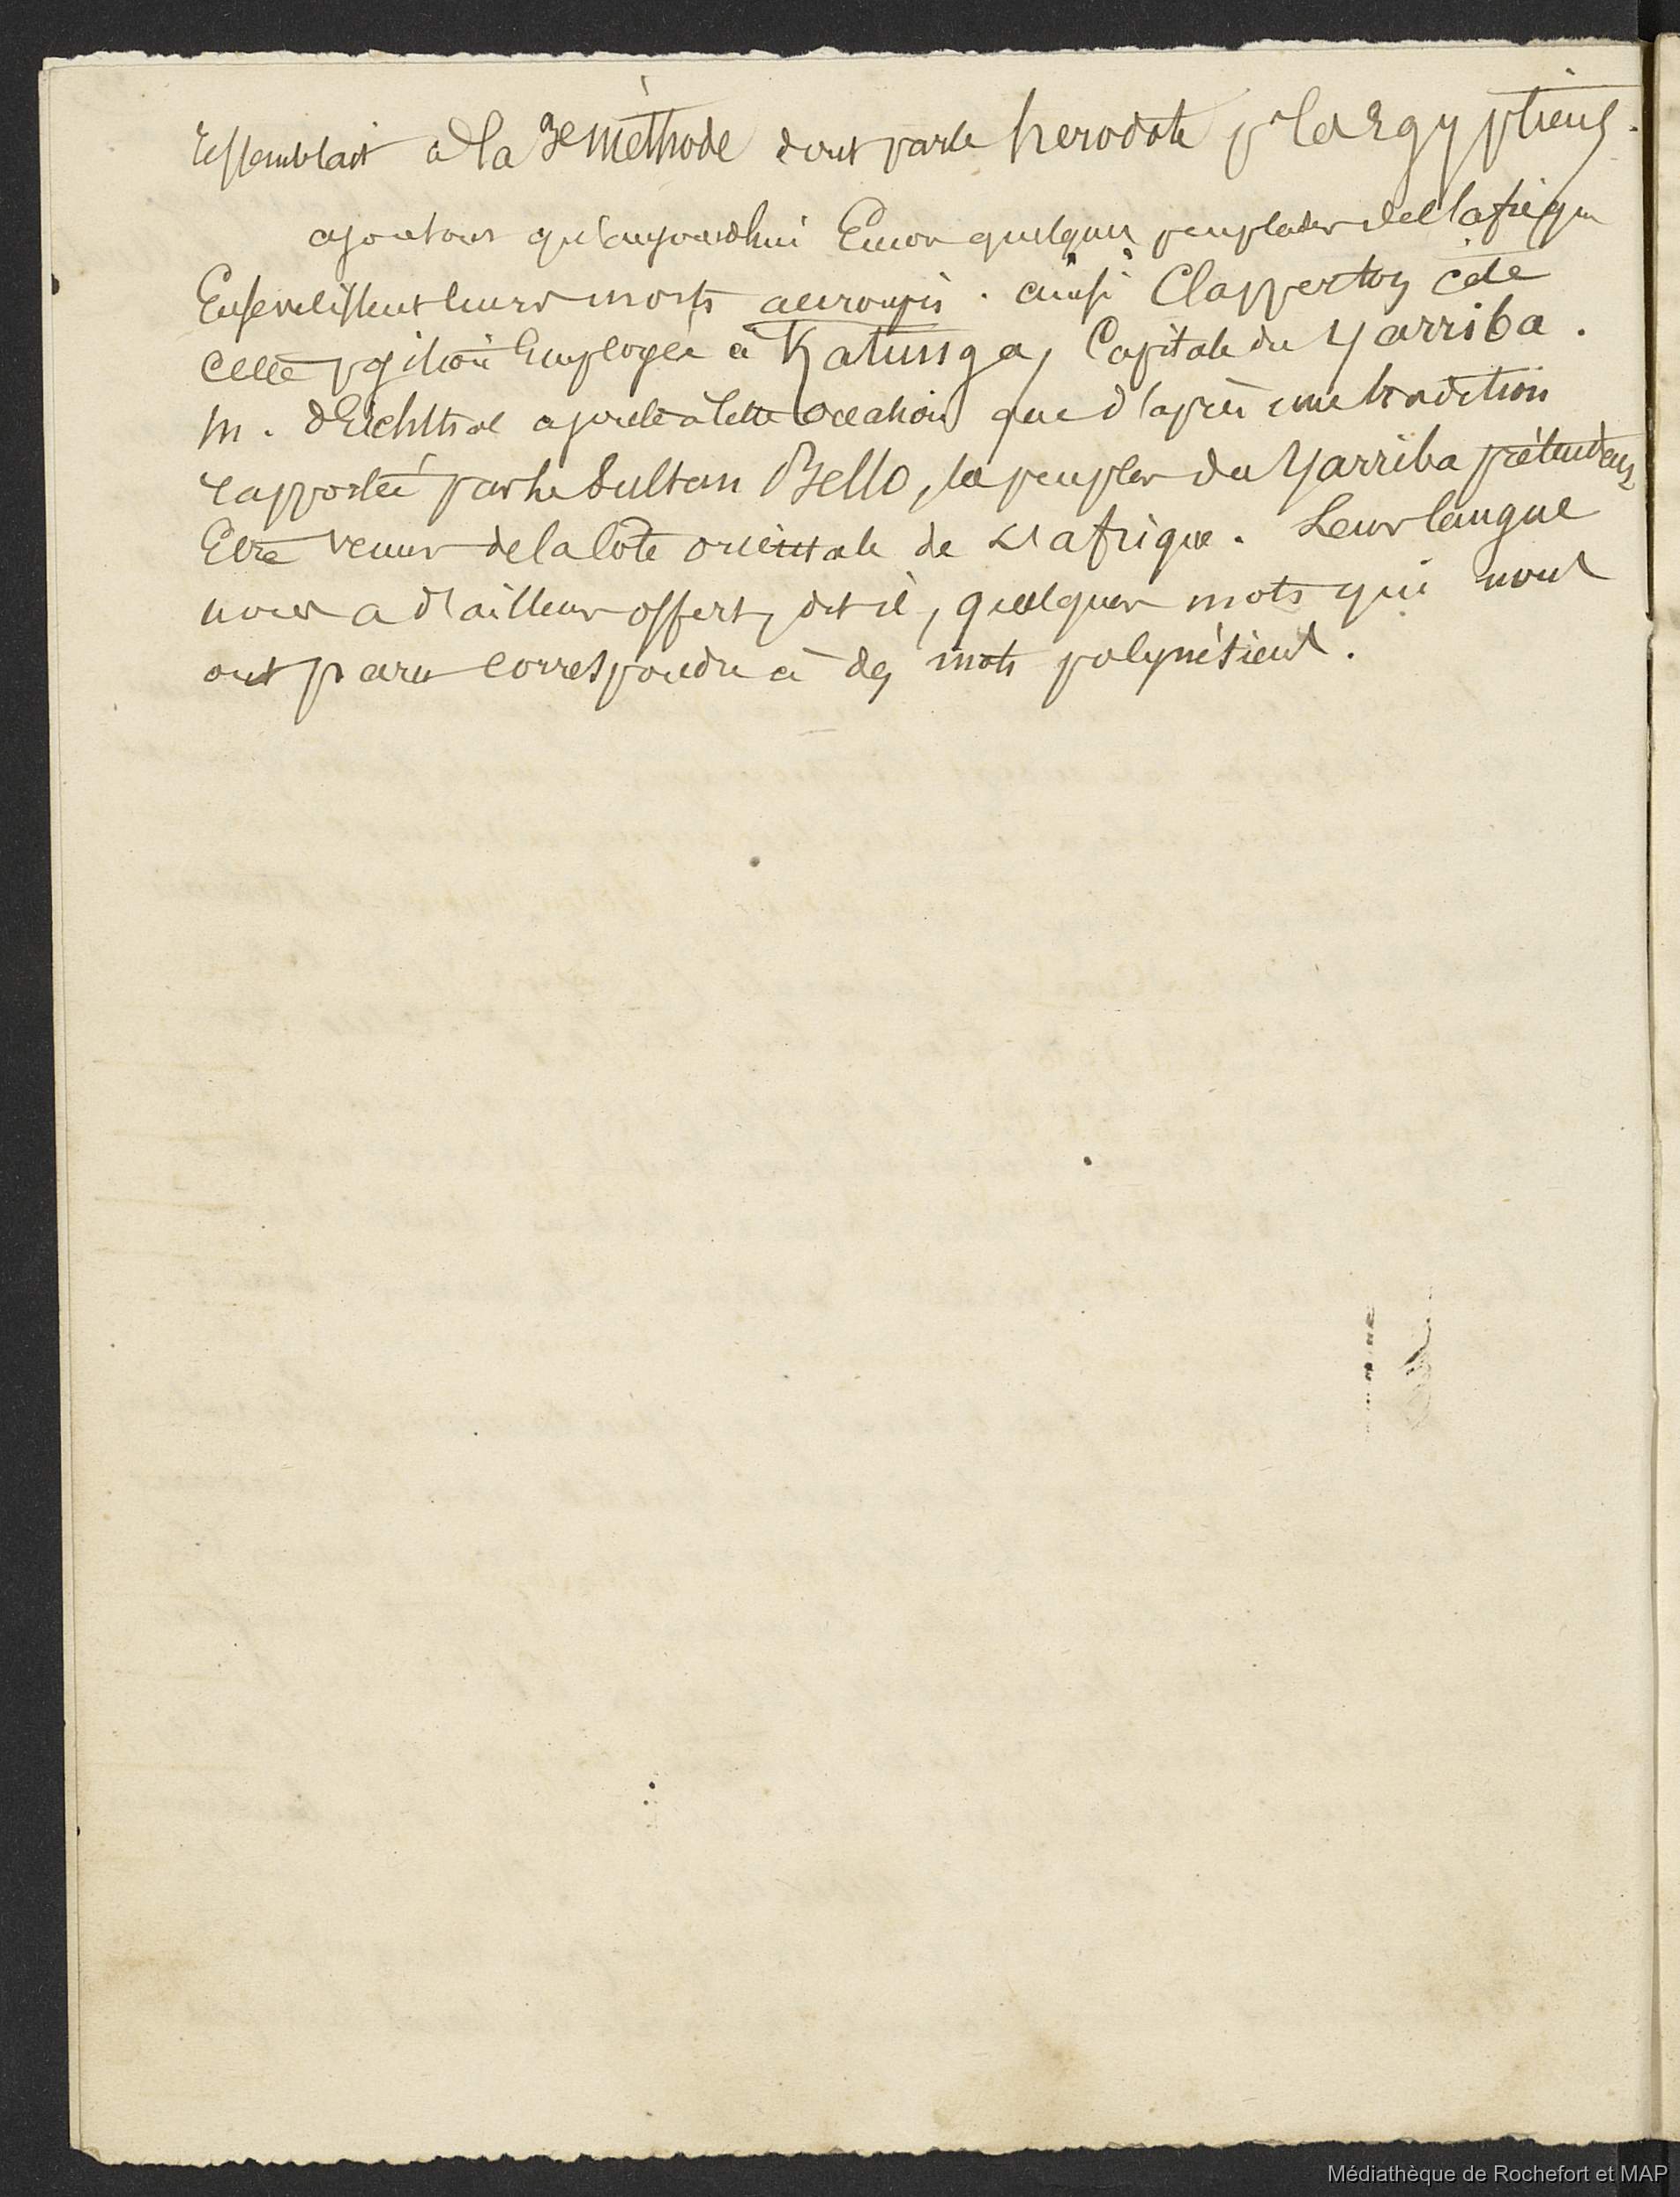 ressemblait à la 3e méthode dont parle herodote pr les Egyptiens.
ajoutons qu'aujourdhui Encor quelques peuplades de l'afrique
Ensevelissent leurs morts accroupis. ainsi Clapperton cite
cette position Employée à Katunga, Capitale du Yarriba.
M. d'Eichthal ajoute à cette occasion que d'après une tradition
rapportée par le Sultan Bello, les peuples du Yarriba prétendent
Etre venus de la Côte orientale de L'afrique. Leur langue
nous a d'ailleurs offert, dit il, quelques mots qui nous
ont paru correspondre à des mots polynésiens.
Médiathèque de Rochefort et MAP